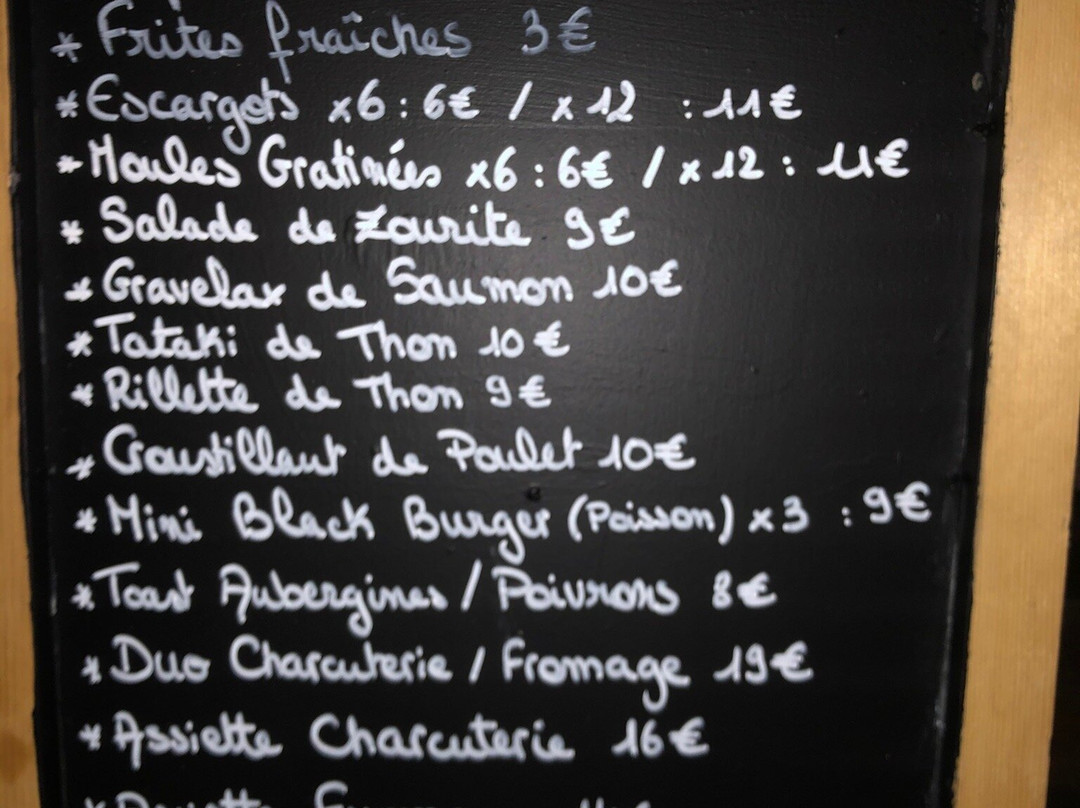 * Frites fraîches 3€
* Escargots x6 : 6€ / x 12 : 11€
* Moules Gratinées x6 : 6€ / x 12 : 11€
* Salade de Zourite 9€
* Gravelax de Saumon 10€
* Tataki de Thon 10€
* Rillette de Thon 9€
* Croustillant de Poulet 10€
* Mini Black Burger (Poisson) x3 : 9€
* Toast Aubergines / Poivrons 8€
* Duo Charcuterie / Fromage 19€
* Assiette Charcuterie 16€